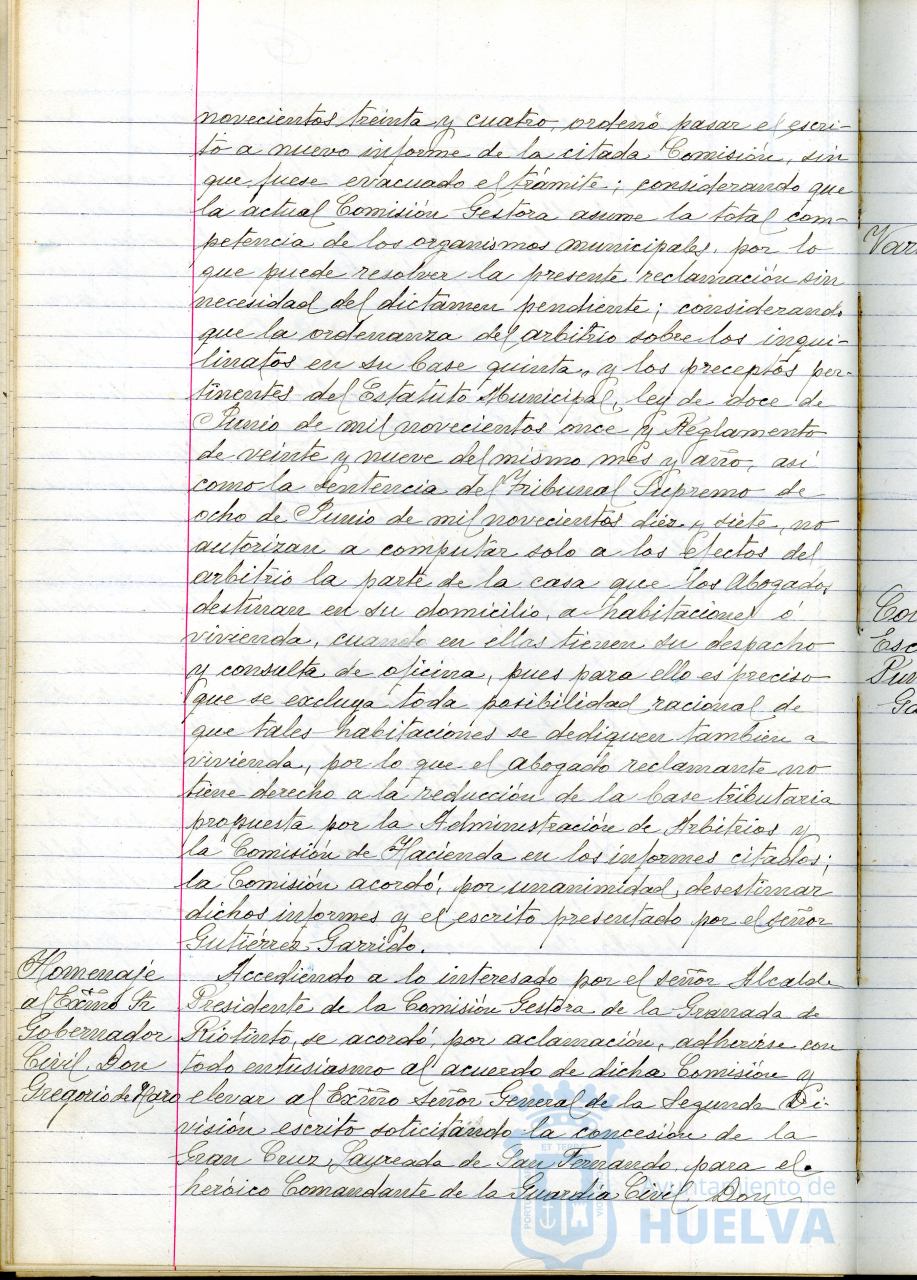 novecientos treinta y cuatro, ordenó pasar el escri-
to a nuevo informe de la citada Comisión, sin
que fuese evacuado el trámite; considerando que
la actual Comisión Gestora asume la total com-
petencia de los organismos municipales, por lo
que puede resolver la presente reclamación sin
necesidad del dictamen pendiente; considerando
que la ordenanza del arbitrio sobre los inqui-
linatos en su base quinta, y los preceptos per-
tinentes del Estatuto Municipal, ley de doce de
Junio de mil novecientos once y Reglamento
de veinte y nueve del mismo mes y año, así
como la Sentencia del Tribunal Supremo de
ocho de Junio de mil novecientos diez y siete, no
autorizan a computar solo a los efectos del
arbitrio la parte de la casa que los Abogados
destinan en su domicilio, a habitaciones ó
vivienda, cuando en ellas tienen su despacho
y consulta de oficina, pues para ello es preciso
que se excluya toda posibilidad racional de
que tales habitaciones se dediquen también a
vivienda, por lo que el Abogado reclamante no
tiene derecho a la reducción de la base tributaria
propuesta por la Administración de Arbitrios y
la Comisión de Hacienda en los informes citados;
la Comisión acordó, por unanimidad, desestimar
dichos informes y el escrito presentado por el señor
Gutiérrez Garrido.
Homenaje
al Excmo Sr
Gobernador
Civil, Don
Gregorio de Haro
Accediendo a lo interesado por el señor Alcalde
Presidente de la Comisión Gestora de la Granada de
Riotinto, se acordó, por aclamación, adherirse con
todo entusiasmo al acuerdo de dicha Comisión y
elevar al Excmo Señor General de la Segunda Di-
visión escrito solicitando la concesión de la
Gran Cruz Laureada de San Fernando, para el
heróico Comandante de la Guardia Civil Don
Ayuntamiento de
HUELVA